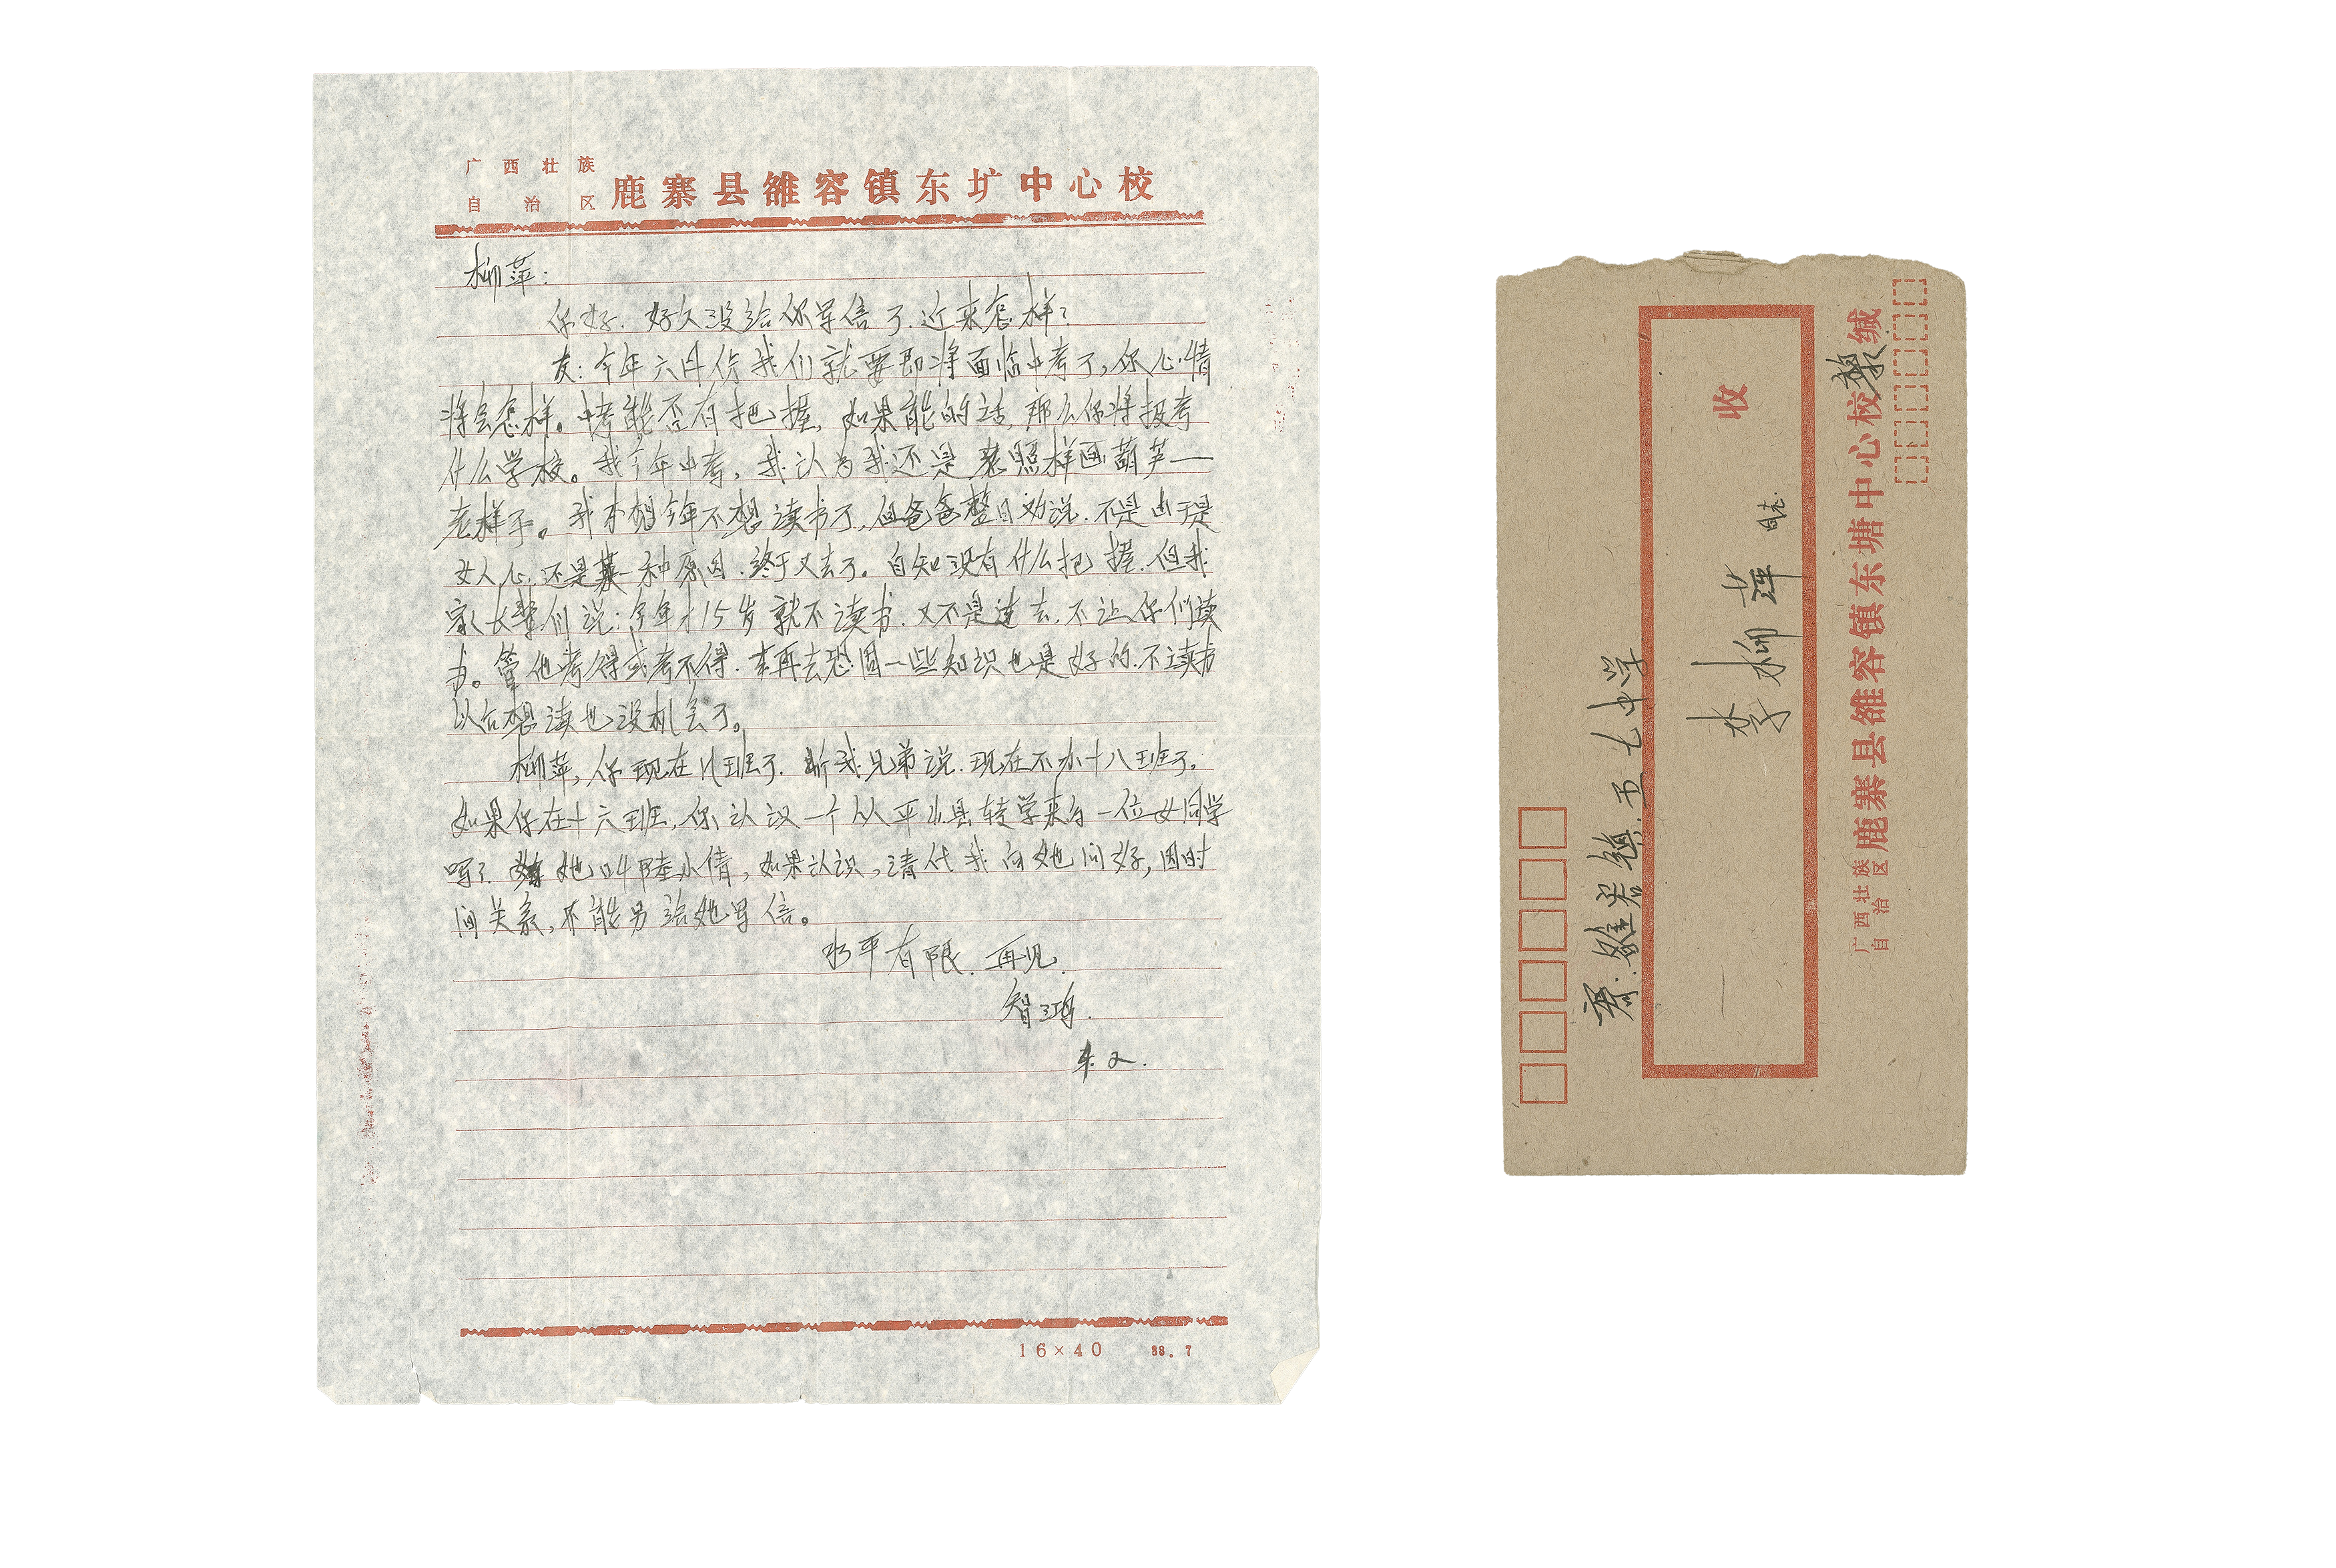 广西壮族
自治区
鹿寨县雒容镇东圹中心校
柳萍：
你好．好久没给你写信了．近来怎样？
友：今年六月份我们就要即将面临中考了，你心情
将会怎样。中考能否有把握，如果能的话，那么你将报考
什么学校。我今年中考，我认为我还是照样画葫芦——
老样子。我本想今年不想读书了，但爸爸整日劝说．不是由于是
女人心．还是某种原因．终于又去了。自知没有什么把握．但我
家长辈们说：今年才15岁就不读书．又不是过去．不让你们读
书。管他考得或考不得．去再去巩固一些知识也是好的．不读书
以后想读也没机会了。
柳萍，你现在几班了．听我兄弟说．现在不分十八班了。
如果你在十六班，你认识一个从平山县转学来的一位女同学
吗？她叫陆小倩，如果认识，请代我向她问好，因时
间关系，不能另给她写信。
水平有限．再见．
智鸿．
16×40 88.7
寄：雒容镇．五七中学
收
李柳萍 同志．
广西壮族
自治区
鹿寨县雒容镇东塘中心校 黎 缄